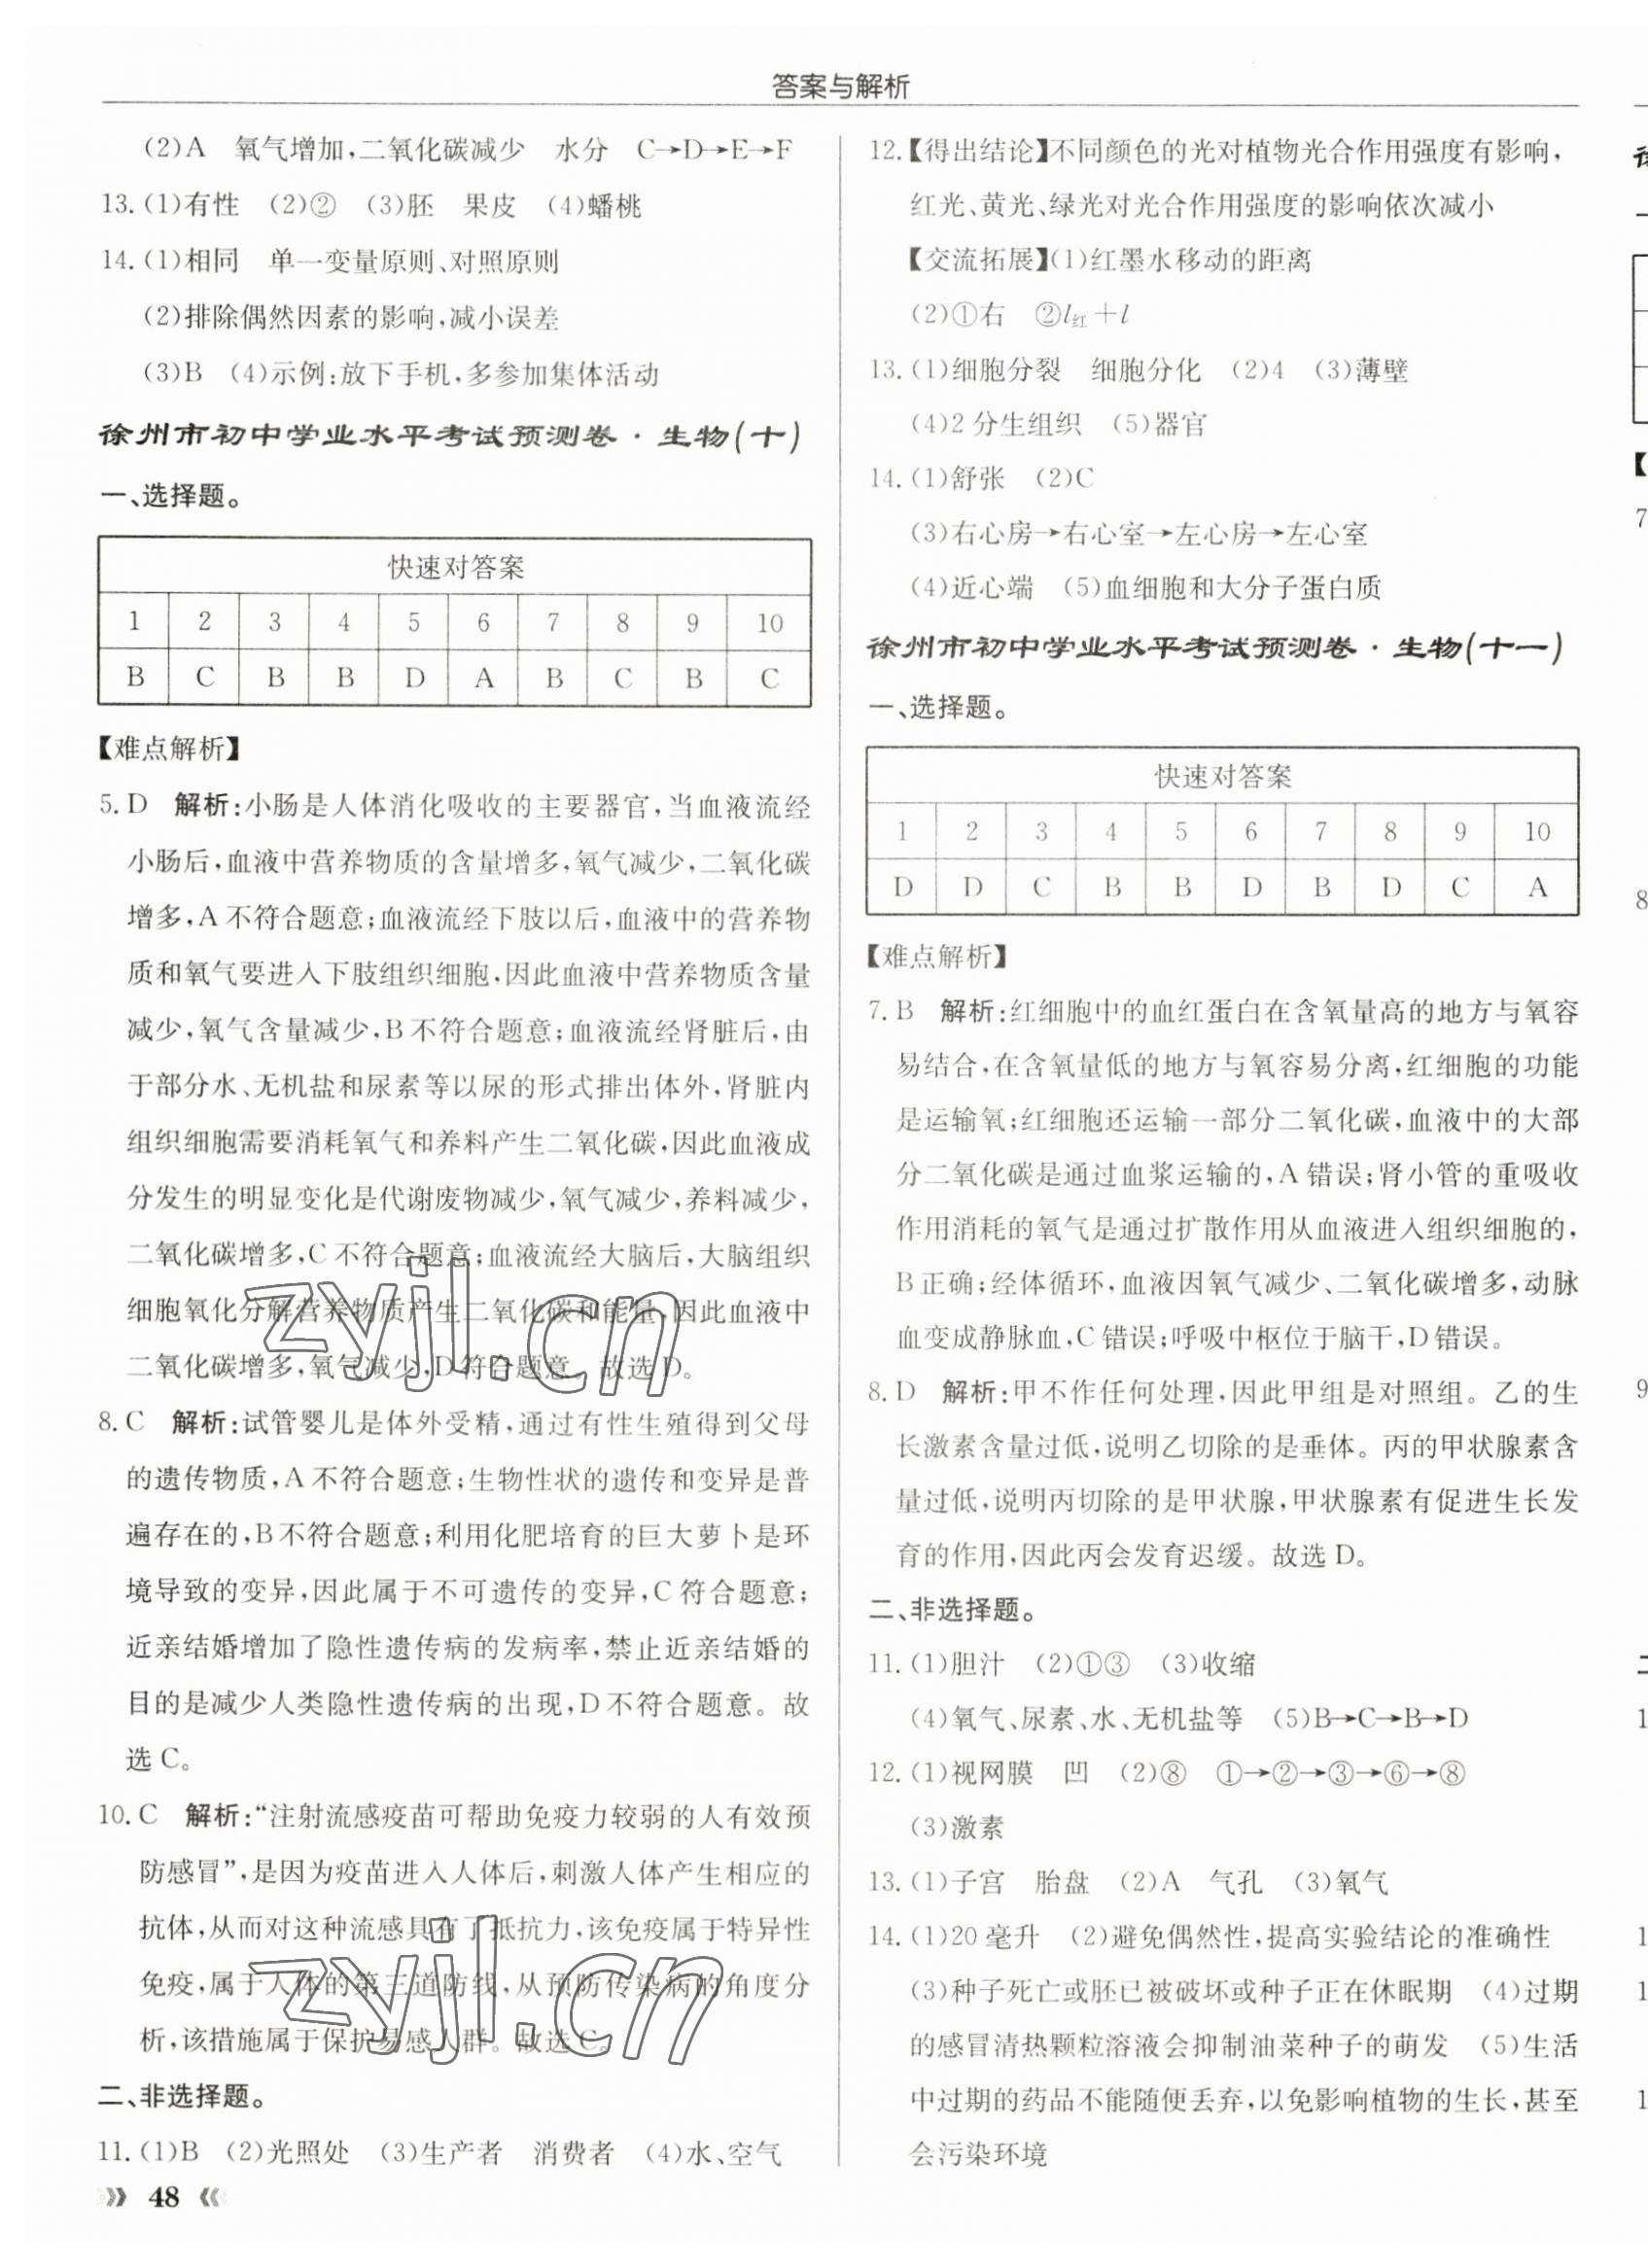 答案与解析
(2)A　氧气增加,二氧化碳减少　水分　C→D→E→F
13.(1)有性　(2)②　(3)胚　果皮　(4)蟠桃
14.(1)相同　单一变量原则、对照原则
(2)排除偶然因素的影响,减小误差
(3)B　(4)示例:放下手机,多参加集体活动
徐州市初中学业水平考试预测卷·生物(十)
一、选择题。
快速对答案
1 2 3 4 5 6 7 8 9 10
B C B B D A B C B C
【难点解析】
5.D　解析:小肠是人体消化吸收的主要器官,当血液流经
小肠后,血液中营养物质的含量增多,氧气减少,二氧化碳
增多,A不符合题意;血液流经下肢以后,血液中的营养物
质和氧气要进入下肢组织细胞,因此血液中营养物质含量
减少,氧气含量减少,B不符合题意;血液流经肾脏后,由
于部分水、无机盐和尿素等以尿的形式排出体外,肾脏内
组织细胞需要消耗氧气和养料产生二氧化碳,因此血液成
分发生的明显变化是代谢废物减少,氧气减少,养料减少,
二氧化碳增多,C不符合题意;血液流经大脑后,大脑组织
细胞氧化分解营养物质产生二氧化碳和能量,因此血液中
二氧化碳增多,氧气减少,D符合题意。故选D。
8.C　解析:试管婴儿是体外受精,通过有性生殖得到父母
的遗传物质,A不符合题意;生物性状的遗传和变异是普
遍存在的,B不符合题意;利用化肥培育的巨大萝卜是环
境导致的变异,因此属于不可遗传的变异,C符合题意;
近亲结婚增加了隐性遗传病的发病率,禁止近亲结婚的
目的是减少人类隐性遗传病的出现,D不符合题意。故
选C。
10.C　解析:“注射流感疫苗可帮助免疫力较弱的人有效预
防感冒”,是因为疫苗进入人体后,刺激人体产生相应的
抗体,从而对这种流感具有了抵抗力,该免疫属于特异性
免疫,属于人体的第三道防线,从预防传染病的角度分
析,该措施属于保护易感人群。故选C。
二、非选择题。
11.(1)B　(2)光照处　(3)生产者　消费者　(4)水、空气
48
12.【得出结论】不同颜色的光对植物光合作用强度有影响,
红光、黄光、绿光对光合作用强度的影响依次减小
【交流拓展】(1)红墨水移动的距离
(2)①右　②l红+l
13.(1)细胞分裂　细胞分化　(2)4　(3)薄壁
(4)2分生组织　(5)器官
14.(1)舒张　(2)C
(3)右心房→右心室→左心房→左心室
(4)近心端　(5)血细胞和大分子蛋白质
徐州市初中学业水平考试预测卷·生物(十一)
一、选择题。
快速对答案
1 2 3 4 5 6 7 8 9 10
D D C B B D B D C A
【难点解析】
7.B　解析:红细胞中的血红蛋白在含氧量高的地方与氧容
易结合,在含氧量低的地方与氧容易分离,红细胞的功能
是运输氧;红细胞还运输一部分二氧化碳,血液中的大部
分二氧化碳是通过血浆运输的,A错误;肾小管的重吸收
作用消耗的氧气是通过扩散作用从血液进入组织细胞的,
B正确;经体循环,血液因氧气减少、二氧化碳增多,动脉
血变成静脉血,C错误;呼吸中枢位于脑干,D错误。
8.D　解析:甲不作任何处理,因此甲组是对照组。乙的生
长激素含量过低,说明乙切除的是垂体。丙的甲状腺素含
量过低,说明丙切除的是甲状腺,甲状腺素有促进生长发
育的作用,因此丙会发育迟缓。故选D。
二、非选择题。
11.(1)胆汁　(2)①③　(3)收缩
(4)氧气、尿素、水、无机盐等　(5)B→C→B→D
12.(1)视网膜　凹　(2)⑧　①→②→③→⑥→⑧
(3)激素
13.(1)子宫　胎盘　(2)A　气孔　(3)氧气
14.(1)20毫升　(2)避免偶然性,提高实验结论的准确性
(3)种子死亡或胚已被破坏或种子正在休眠期　(4)过期
的感冒清热颗粒溶液会抑制油菜种子的萌发　(5)生活
中过期的药品不能随便丢弃,以免影响植物的生长,甚至
会污染环境
zyjl.cn
zyjl.cn